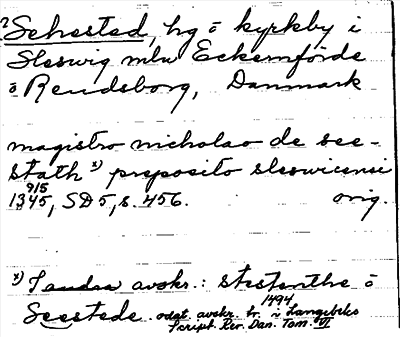 ? Sehested, hg ō kyrkby i
Sleswig mlu Eckernförde
ō Rendsborg, Danmark
magistro nicholao de see-
stath x) preposito sleswicensi
9/5
1345, SD5, s. 456. orig.
x) Landra avskr.: stestanthe ō
1494
Seestede. odat. avskr. tr. i Langebeks
Script. Rer. Dan. Tom. VI